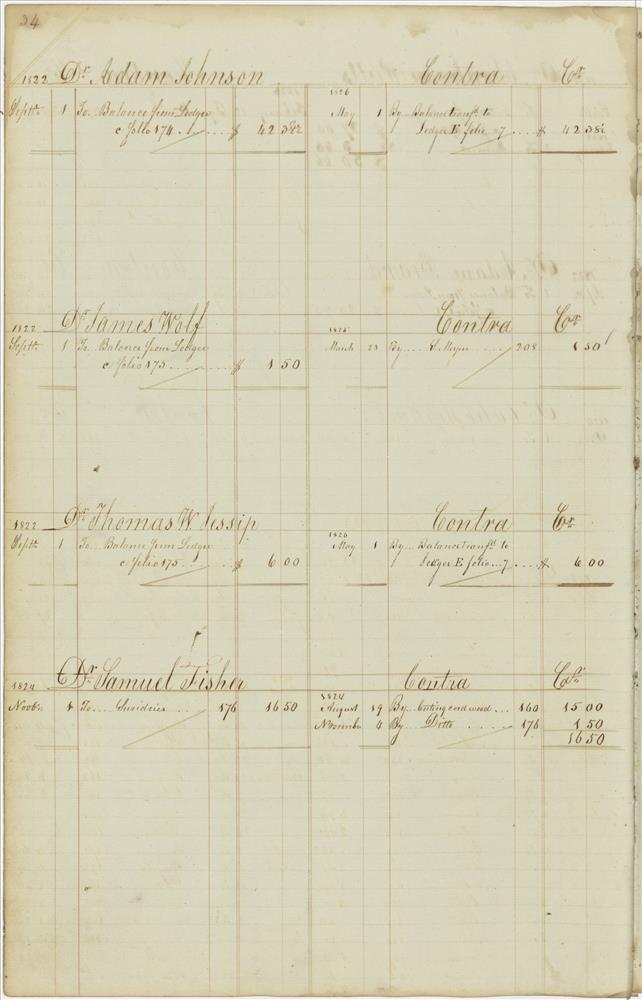 34
1822 Dr. Adam Johnson Contra Cr.
Septr. 1 To Balance from Ledger
c folio 174 $ 42 38½
1826
May 1 By Balance transfd. to
Ledger E folio 7 $ 42 38½
1822 Dr. James Wolf Contra Cr.
Septr. 1 To Balance from Ledger
c folio 175 $ 1 50
March 23 By 208 1 50
1822 Dr. Thomas W Jessip Contra Cr.
Septr. 1 To Balance from Ledger
c folio 175 $ 6 00
1826
May 1 By Balance transfd. to
Ledger E folio 7 $ 6 00
1824 Dr. Samuel Fisher Contra Cr.
Novbr. 4 To Sundries 176 16 50
1824
August 19 By Cutting cord wood 160 15 00
November 4 By Ditto 176 1 50
16 50